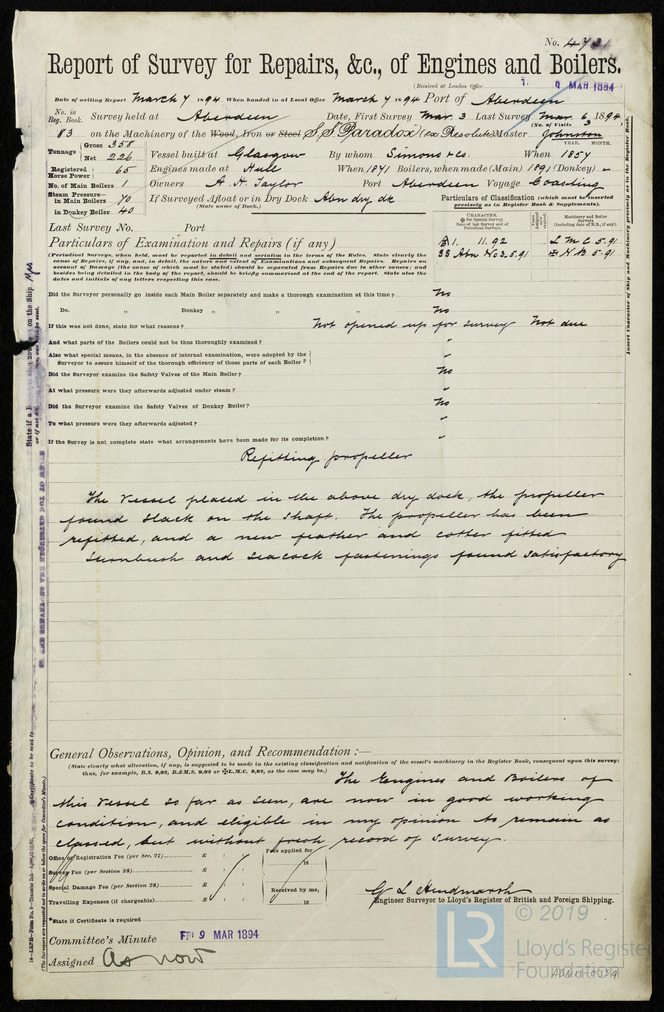 No. 4731
Report of Survey for Repairs, &c., of Engines and Boilers.
(Received at London Office 9 MAR 1894
Date of writing Report March 7 1894 When handed in at Local Office March 7 1894 Port of Aberdeen
No. in Reg. Book. Survey held at Aberdeen Date, First Survey Mar. 3 Last Survey Mar. 6 1894
(No. of Visits 3
83 on the Machinery of the Wood, Iron or Steel S.S. Paradox (ex Resolute) Master Johnston
Tonnage Gross 358
Net 226
Vessel built at Glasgow By whom Simons & Co. When 1857
YEAR. MONTH.
Registered Horse Power 65 Engines made at Hull When 1871 Boilers, when made (Main) 1891 (Donkey) —
No. of Main Boilers 1 Owners A. H. Taylor Port Aberdeen Voyage Coasting
Steam Pressure— in Main Boilers 70 If Surveyed Afloat or in Dry Dock Abn dry dk
(State name of Dock.)
in Donkey Boiler 40
Particulars of Classification (which must be inserted precisely as in Register Book & Supplements).
CHARACTER. ✠ for Special Survey. Date of last Survey and of Periodical Surveys.
Machinery and Boiler Surveys (including date of N.B., if any).
Last Survey No. Port
Particulars of Examination and Repairs (if any)
A 1. 11.92 L M C 5.91
SS Abn No 3. 5.91 ✠ N B 5.91
(Periodical Surveys, when held, must be reported in detail and seriatim in the terms of the Rules. State clearly the
cause of Repairs, if any, and, in detail, the nature and extent of Examination and subsequent Repairs. Repairs on
account of Damage (the cause of which must be stated) should be separated from Repairs due to other causes; and
besides being detailed in the body of the report, should be briefly summarised at the end of the report. State also the
dates and initials of any letters respecting this case.
Did the Surveyor personally go inside each Main Boiler separately and make a thorough examination at this time? No
Do. „ Donkey „ „ „ No
If this was not done, state for what reasons? Not opened up for survey Not due
And what parts of the Boilers could not be thus thoroughly examined? "
Also what special means, in the absence of internal examination, were adopted by the
Surveyor to assure himself of the thorough efficiency of those parts of each Boiler? "
Did the Surveyor examine the Safety Valves of the Main Boiler? No
At what pressure were they afterwards adjusted under steam? "
Did the Surveyor examine the Safety Valves of Donkey Boiler? No
To what pressure were they afterwards adjusted? "
If the Survey is not complete state what arrangements have been made for its completion? "
Refitting propeller
The Vessel placed in the above dry dock, the propeller
found slack on the shaft. The propeller has been
refitted, and a new feather and cotter fitted
Sternbush and seacock fastenings found satisfactory
General Observations, Opinion, and Recommendation :—
(State clearly what alteration, if any, is suggested to be made in the existing classification and notification of the vessel's machinery in the Register Book, consequent upon this survey)
thus, for example, B.S. 9,92, B.&M.S. 9,92 or ✠L.M.C. 9,92, as the case may be.)
The Engines and Boilers of
this vessel so far as seen, are now in good working
condition, and eligible in my opinion to remain as
classed, but without fresh record of survey.
Office or Registration Fee (per Sec. 27) £
Fees applied for 18
Survey Fee (per Section 28) £
Special Damage Fee (per Section 28) £
Received by me, 18
Travelling Expenses (if chargeable) £
G L Hindmarsh
Engineer Surveyor to Lloyd's Register of British and Foreign Shipping.
*State if Certificate is required
Committee's Minute FRI 9 MAR 1894
Assigned As now
Insert Character of Ship and Machinery precisely as in the Register Book.
LR © 2019
Lloyd's Register
Foundation